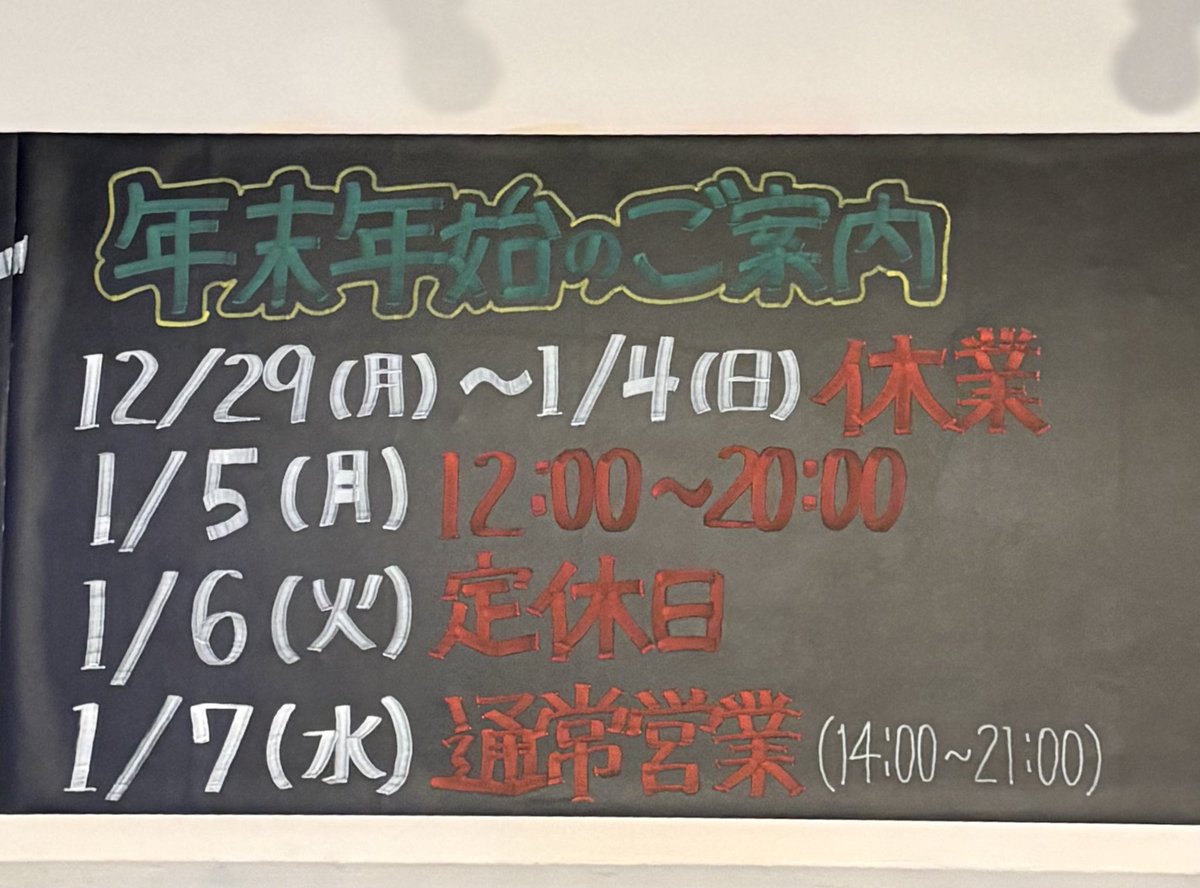 年末年始のご案内
12/29(月)～1/4(日)休業
1/5(月) 12:00～20:00
1/6(火) 定休日
1/7(水) 通常営業(14:00～21:00)